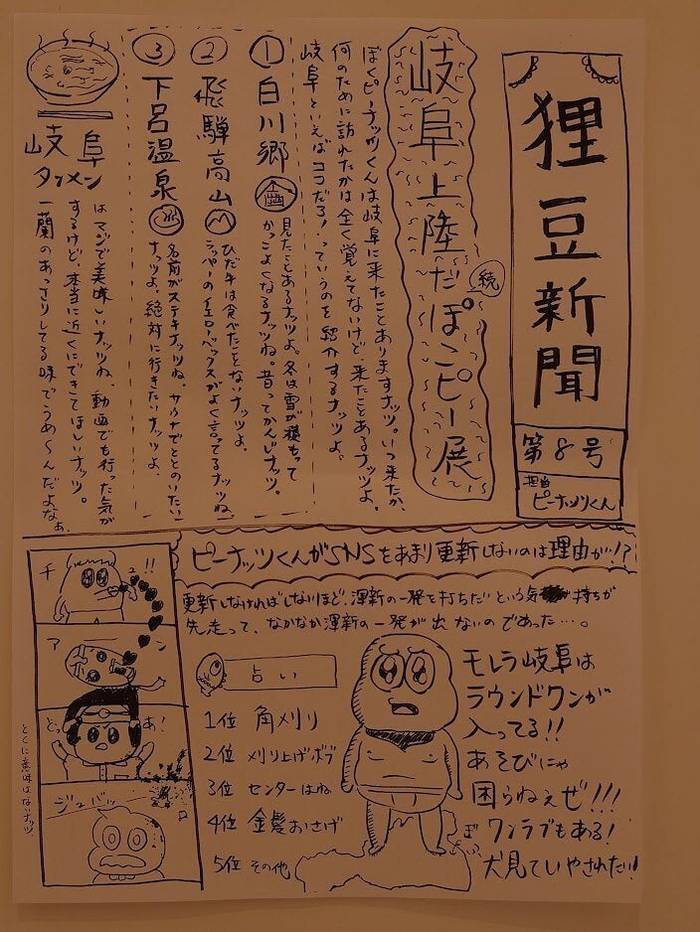 狸豆新聞
第8号
担当
ピーナッツくん
続
岐阜上陸だぽっピー展
ぼくピーナッツくんは岐阜に来たことありますナッツ。いつ来たか、
何のために訪れたかは全く覚えてないけど、来たことあるナッツよ。
岐阜といえばココだろ!っていうのを紹介するナッツよ。
①白川郷
見たことあるナッツよ。冬は雪が積もって
かっこよくなるナッツね。昔ってかんじナッツ。
②飛騨高山
ひだ牛は食べたことないナッツよ。
ラッパーのイエローバックスがよく言ってるナッツね。
③下呂温泉
名前がステキナッツね。サウナでととのいたい
ナッツよ。絶対に行きたいナッツよ。
岐阜
タンメン
はマジで美味しいナッツね、動画でも行った気が
するけど、本当に近くにできてほしいナッツ。
一蘭のあっさりしてる味でうめ〜んだよなぁ。
ピーナッツくんがSNSをあまり更新しないのは理由が!?
更新しなければしないほど、渾新の一発を打ちたいという気持ちが
先走って、なかなか渾新の一発が出ないのであった…。
占い
1位 角刈り
2位 刈り上げボブ
3位 センターはね
4位 金髪おさげ
5位 その他
モレラ岐阜は
ラウンドワンが
入ってる!!
あそびにゃ
困らねぇぜ!!!
ワンラブもある!
犬見ていやされたい!
ぎふ
チュ!!
アーン
どっ あ!
ジュバッ
とくに意味はないナッツ。